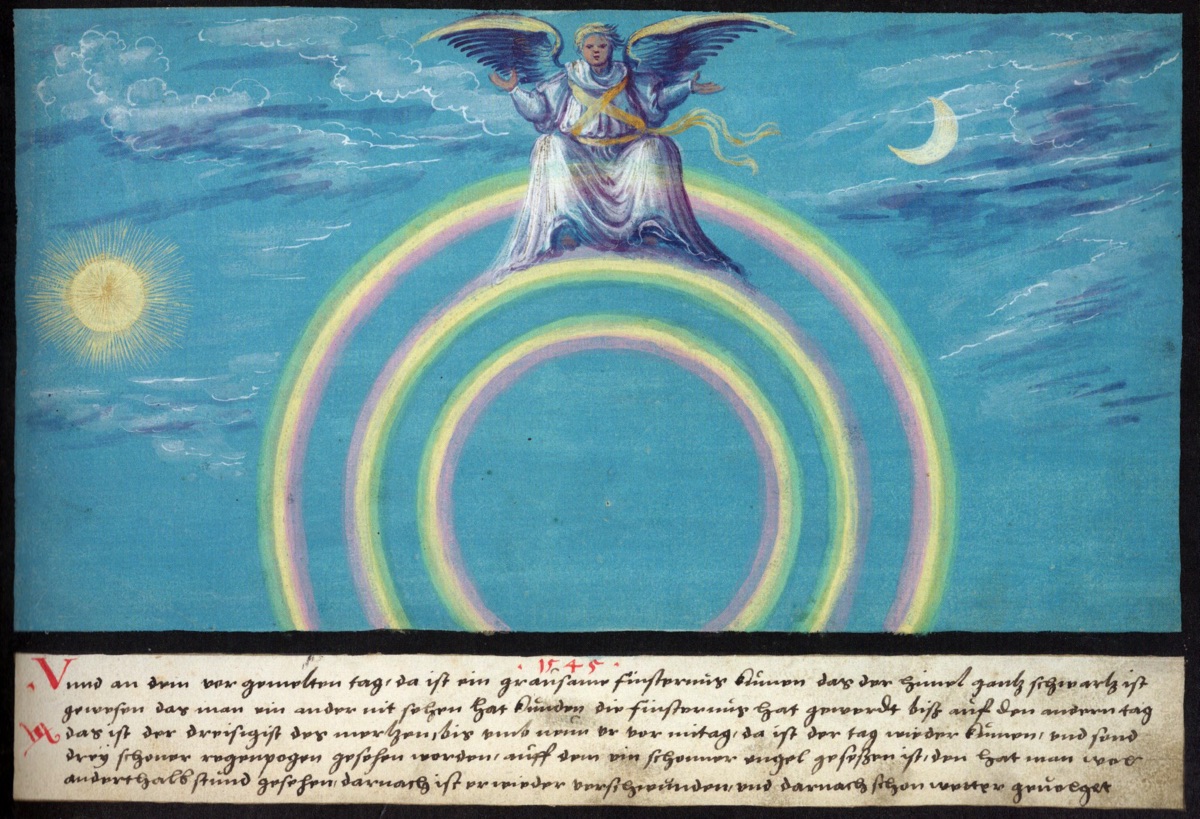 · 1545 ·
Vnnd an dem vor gemelten tag, da ist ein graüsame finsternüs kümen das der himel gantz schwartz ist
gewesen das man ein ander nit sehen hat künden die finsternüs hat gewerdt biß aüf den andern tag
das ist der dreisigist des mertzens, bis vmb neün vr vor mitag, da ist der tag wieder kümen, vnd send
dreÿ schoner regenpogen gesehen worden, aüff dem ein schonner engel geseßen ist, den hat man wol
anderthalb stünd gesehen, darnach ist er wieder verschwünden, vnd darnach schon wetter geuolget